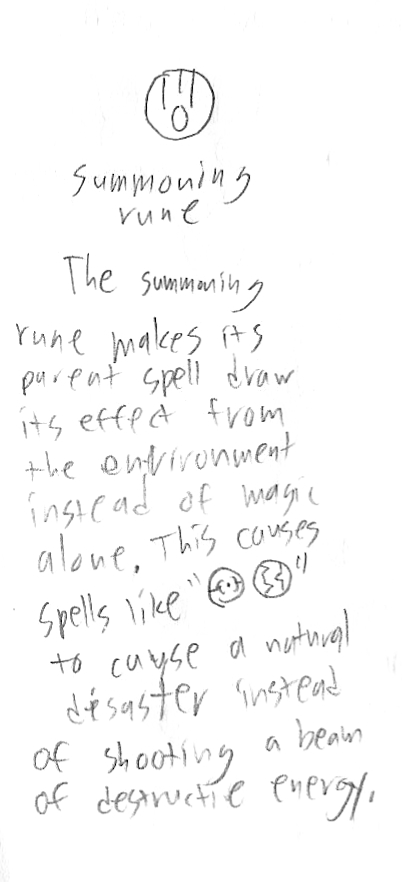 summoning
rune
The summoning
rune makes its
parent spell draw
its effect from
the environment
instead of magic
alone. This causes
spells like " "
to cuyse a natural
disaster instead
of shooting a beam
of destructie energy.